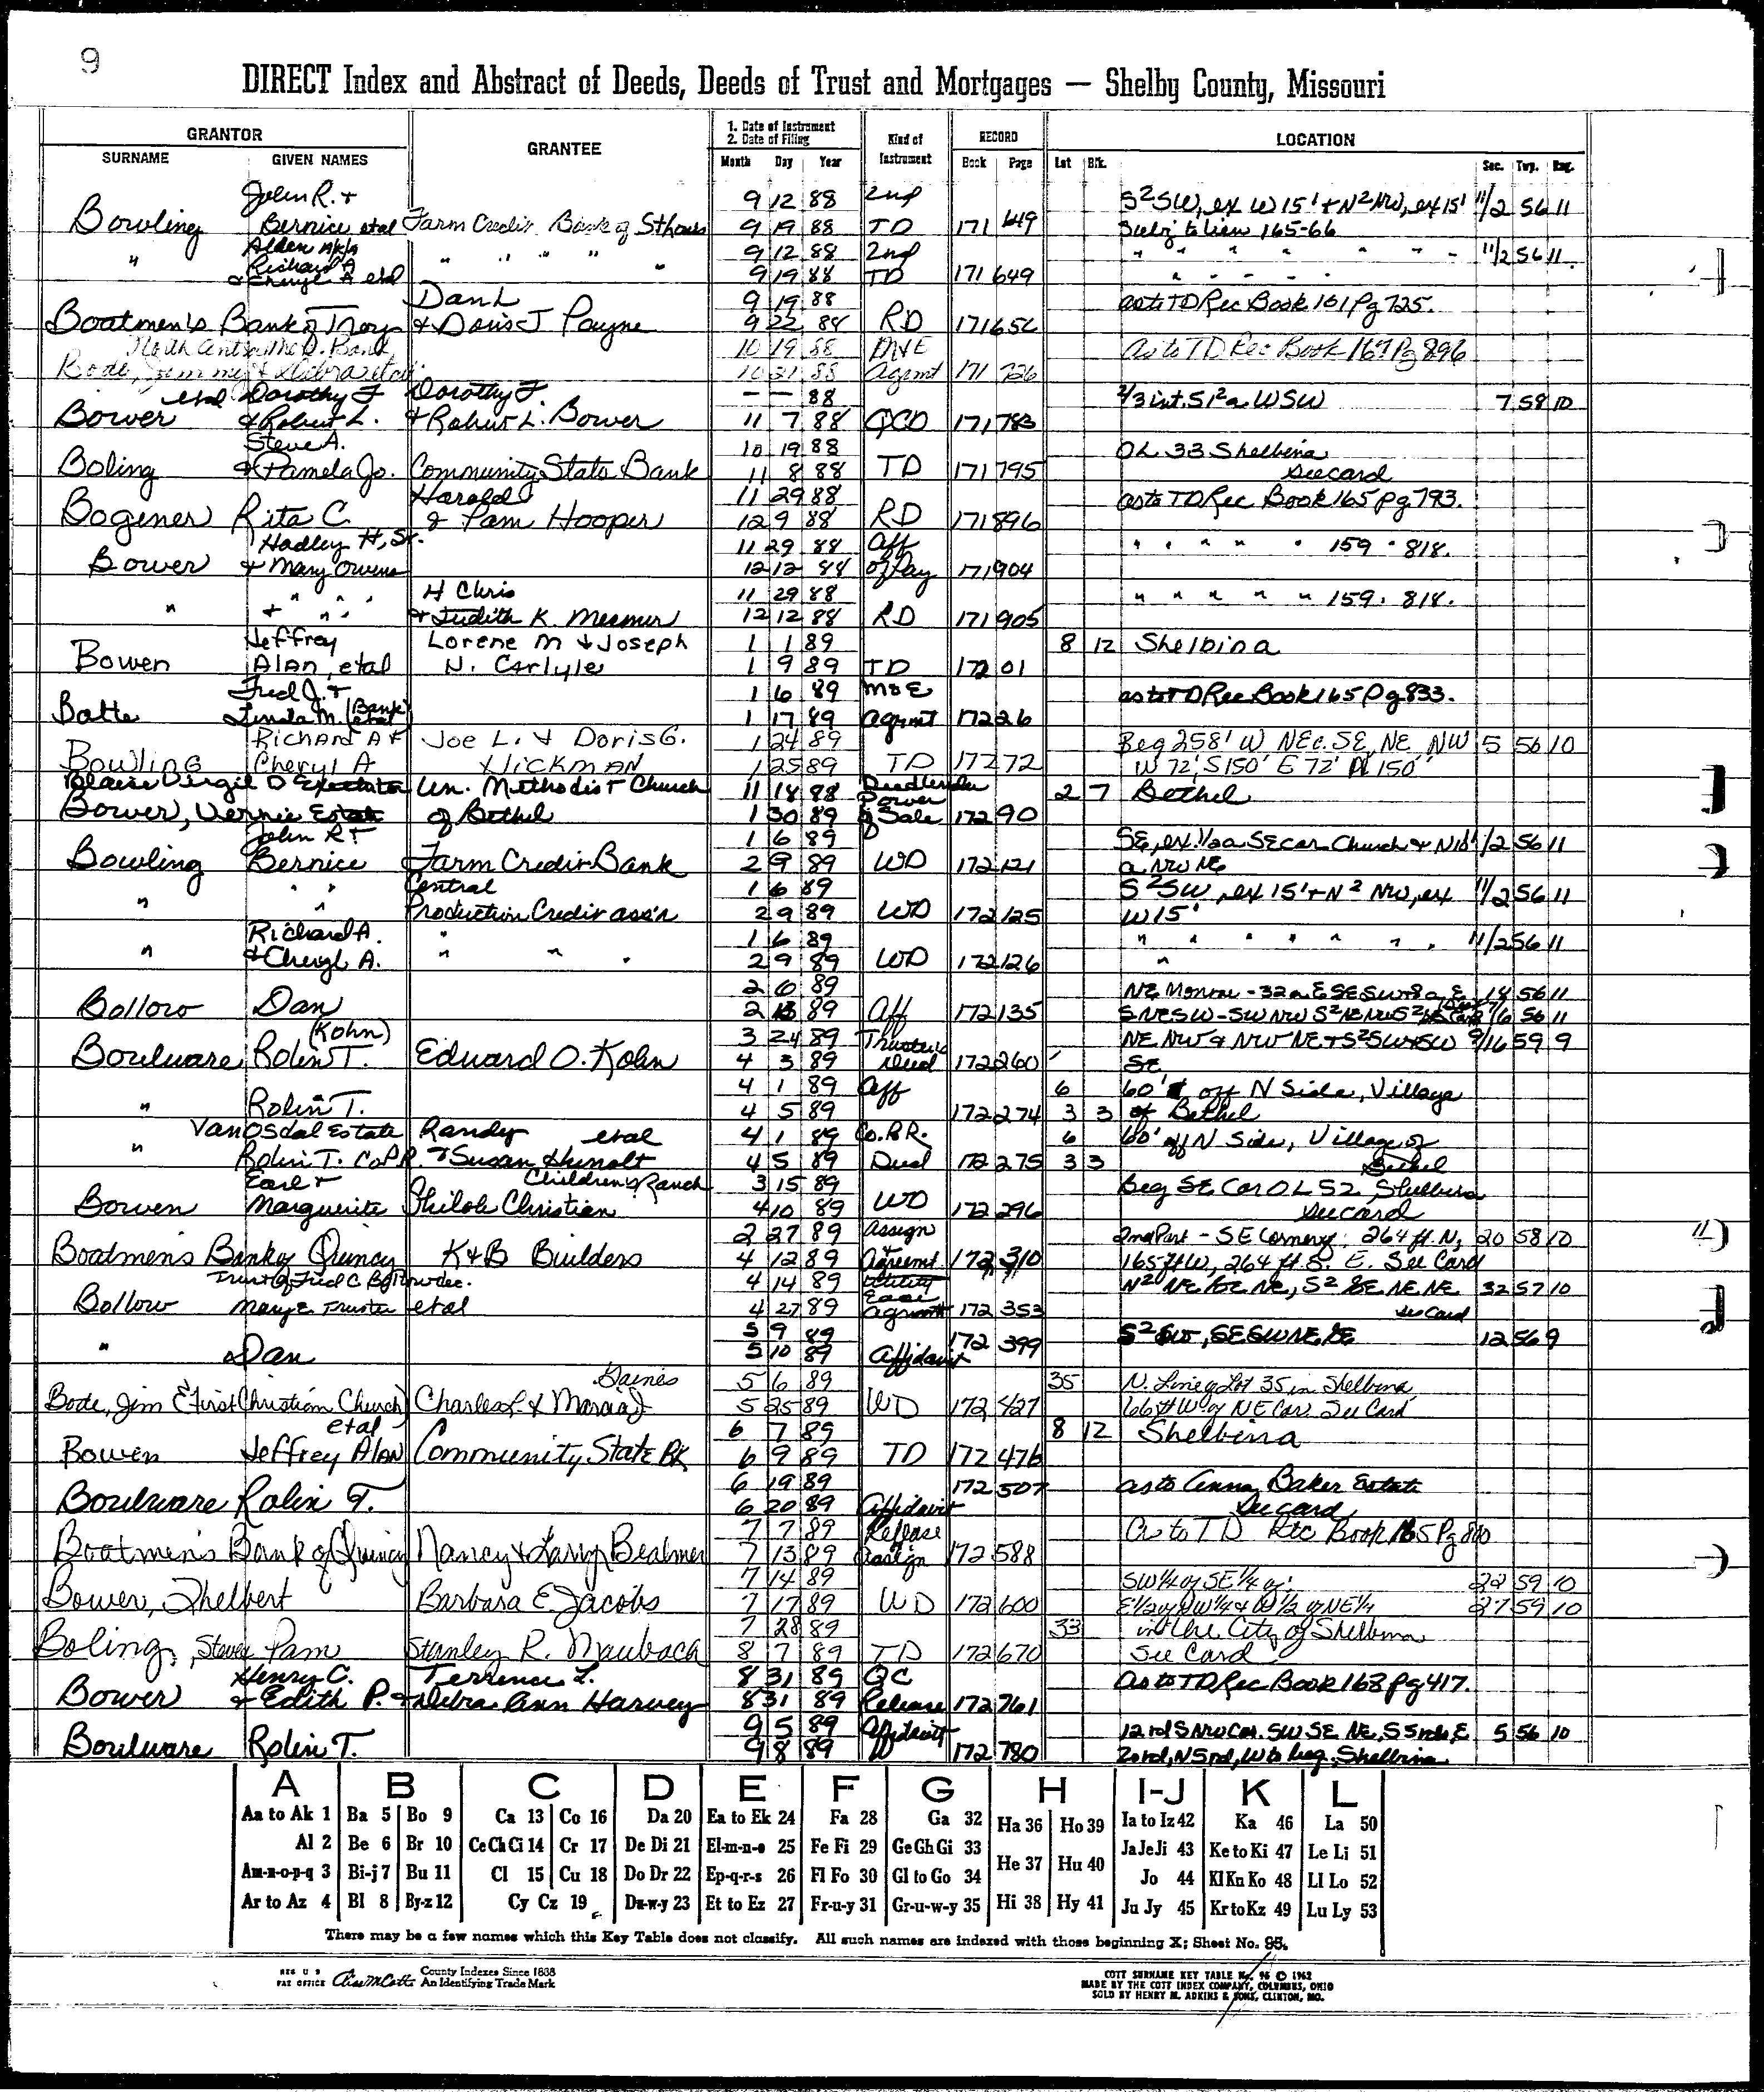 9
DIRECT Index and Abstract of Deeds, Deeds of Trust and Mortgages — Shelby County, Missouri
GRANTOR GRANTEE 1. Date of Instrument 2. Date of Filing Kind of Instrument RECORD LOCATION
SURNAME GIVEN NAMES Month Day Year Book Page Lot Blk. Sec. Twp. Rng.
John R. + 9 12 88 2nd S²SW, ex W 15' + N²NW, ex 15' 11/2 56 11
Bowling Bernice etal Farm Credit Bank of St Louis 9 19 88 TD 171 649 Subj to lien 165-66
Alden AKA 9 12 88 2nd " " " " " " " 11/2 56 11
" Richard A " " " " "
& Cheryl A etal 9 19 88 TD 171 649 " " " " "
Dan L 9 19 88 as to TD Rec Book 161 Pg 725.
Boatmen's Bank of Troy & Doris J Payne 9 22 88 RD 171 656
10 19 88 M&E As to TD Rec Book 167 Pg 896
Bode, Jimmy & Debra etal 10 21 88 Agemt 171 726
etal Dorothy F Dorothy F. — — 88 2/3 int. 51²a WSW 7 58 10
Bower & Robert L. & Robert L. Bower 11 7 88 QCD 171 783
Steve A. 10 19 88 OL 33 Shelbina
Boling & Pamela Jo. Community State Bank 11 8 88 TD 171 795 See card
Harold 11 29 88 as to TD Rec Book 165 Pg 793.
Bogener Rita C. & Pam Hooper 12 9 88 RD 171 896
Hadley H, Sr. 11 29 88 Aff " " " " " 159 " 818.
Bower & Mary Owens 12 12 88 of Pay 171 904
" " " H Chris 11 29 88 " " " " " 159 " 818.
" & " " & Judith K. Mesmer 12 12 88 RD 171 905
Jeffrey Lorene M & Joseph 1 1 89 8 12 Shelbina
Bowen Alan, etal N. Carlyle 1 9 89 TD 172 01
Fred J. + 1 6 89 M&E as to TD Rec Book 165 Pg 833.
Batte Linda M. (Bank etal) 1 17 89 Agemt 172 26
Richard A + Joe L. & Doris G. 1 24 89 Beg 258' W NEc. SE, NE NW 5 56 10
Bowling Cheryl A Hickman 1 25 89 TD 172 72 W 72', S 150' E 72' N 150'
Blaise Virgil D Un. Methodist Church 11 18 88 Deed under 2 7 Bethel
Bower, Vernie Estate of Bethel 1 30 89 Power of Sale 172 90
John R + 1 6 89 SE, ex. 1/2a SE cor Church & N10' 1/2 56 11
Bowling Bernice Farm Credit Bank 2 9 89 WD 172 121 a NW NE
" " Central 1 6 89 S²SW, ex 15' + N² NW, ex 11/2 56 11
" " Production Credit ass'n 2 9 89 WD 172 125 W 15'
Richard A. " 1 6 89 " " " " " " " 11/2 56 11
" & Cheryl A. " " " 2 9 89 WD 172 126 "
2 6 89 NE Monroe - 32a E SE SW + 8a E 18 56 11
Bollow Dan 2 13 89 Aff 172 135 SNESW - SW NW S²NE NW 7/6 56 11
(Kohn) 3 24 89 Trustee's NE NW & NW NE + S²SW + SW 9/16 59 9
Boulware Rolin T. Edward O. Kohn 4 3 89 Deed 172 260 SE
4 1 89 Aff 6 60' off N Side, Village
" Rolin T. 4 5 89 172 274 3 3 of Bethel
Van Osdal Estate Randy etal 4 1 89 Co. P.R. 6 60' off N Side, Village of
" Rolin T. Co P.R. & Susan Shinolt 4 5 89 Deed 172 275 3 3 Bethel
Earl + Children's Ranch 3 15 89 Beg SE Cor OL 52 Shelbina
Bowen Marguerite Shiloh Christian 4 10 89 WD 172 296 See card
2 27 89 Assign 2nd Part - SE Corner of; 264 ft. N, 20 58 10
Boatmen's Bank of Quincy K & B Builders 4 12 89 & Agreemt 172 310 165 ft W, 264 ft. S. E. See Card
Trust of Fred C Bollow dec. 4 14 89 Utility N² NE SE NE, S² SE NE NE 32 57 10
Bollow Mary E Trustee etal 4 27 89 Ease Agrmt 172 353 See Card
5 9 89 172 399 S² SW, SE SW NE SE 12 56 9
" Dan 5 10 89 Affidavit
Gaines 5 6 89 35 N. Line of Lot 35 in Shelbina,
Bode, Jim & (First Christian Church) Charles L & Marcia J 5 25 89 WD 172 427 66 ft W of NE Cor. See Card
etal 6 7 89 8 12 Shelbina
Bowen Jeffrey Alan Community State Bk 6 9 89 TD 172 476
6 19 89 172 507 as to Anna Baker Estate
Boulware Rolin T. 6 20 89 Affidavit See card
7 7 89 Release As to TD Rec Book 165 Pg 800
Boatmen's Bank of Quincy Nancy & Larry Bealmer 7 13 89 Assign 172 588
7 14 89 SW¼ of SE¼ of; 22 59 10
Bower, Shelbert Barbara E Jacobs 7 17 89 WD 172 600 E½ of NW¼ & W½ of NE¼ 27 59 10
7 28 89 33 in the City of Shelbina
Boling, Steve Pam Stanley R. Maubach 8 7 89 TD 172 670 See Card
Henry C. Terrence L. 8 31 89 QC As to TD Rec Book 168 Pg 417.
Bower & Edith P. & Debra Ann Harvey 8 31 89 Release 172 761
9 5 89 Affidavit 12 rd S NW Cor. SW SE NE, S 5 rds, E 5 56 10
Boulware Rolin T. 9 8 89 172 780 20 rd, N 5 rd, W to beg. Shelbina
A B C D E F G H I-J K L
Aa to Ak 1 Ba 5 Bo 9 Ca 13 Co 16 Da 20 Ea to Ek 24 Fa 28 Ga 32 Ha 36 Ho 39 Ia to Iz 42 Ka 46 La 50
Al 2 Be 6 Br 10 Ce Ch Ci 14 Cr 17 De Di 21 El-m-n-o 25 Fe Fi 29 Ge Gh Gi 33 He 37 Hu 40 Ja Je Ji 43 Ke to Ki 47 Le Li 51
Am-n-o-p-q 3 Bi-j 7 Bu 11 Cl 15 Cu 18 Do Dr 22 Ep-q-r-s 26 Fl Fo 30 Gl to Go 34 Jo 44 Kl Kn Ko 48 Ll Lo 52
Ar to Az 4 Bl 8 By-z 12 Cy Cz 19 Du-w-y 23 Et to Ez 27 Fr-u-y 31 Gr-u-w-y 35 Hi 38 Hy 41 Ju Jy 45 Kr to Kz 49 Lu Ly 53
There may be a few names which this Key Table does not classify. All such names are indexed with those beginning X; Sheet No. 95.
REG U S PAT OFFICE County Indexes Since 1888 An Identifying Trade Mark
COTT SURNAME KEY TABLE No. 96 © 1962
MADE BY THE COTT INDEX COMPANY, COLUMBUS, OHIO
SOLD BY HENRY M. ADKINS & SONS, CLINTON, MO.